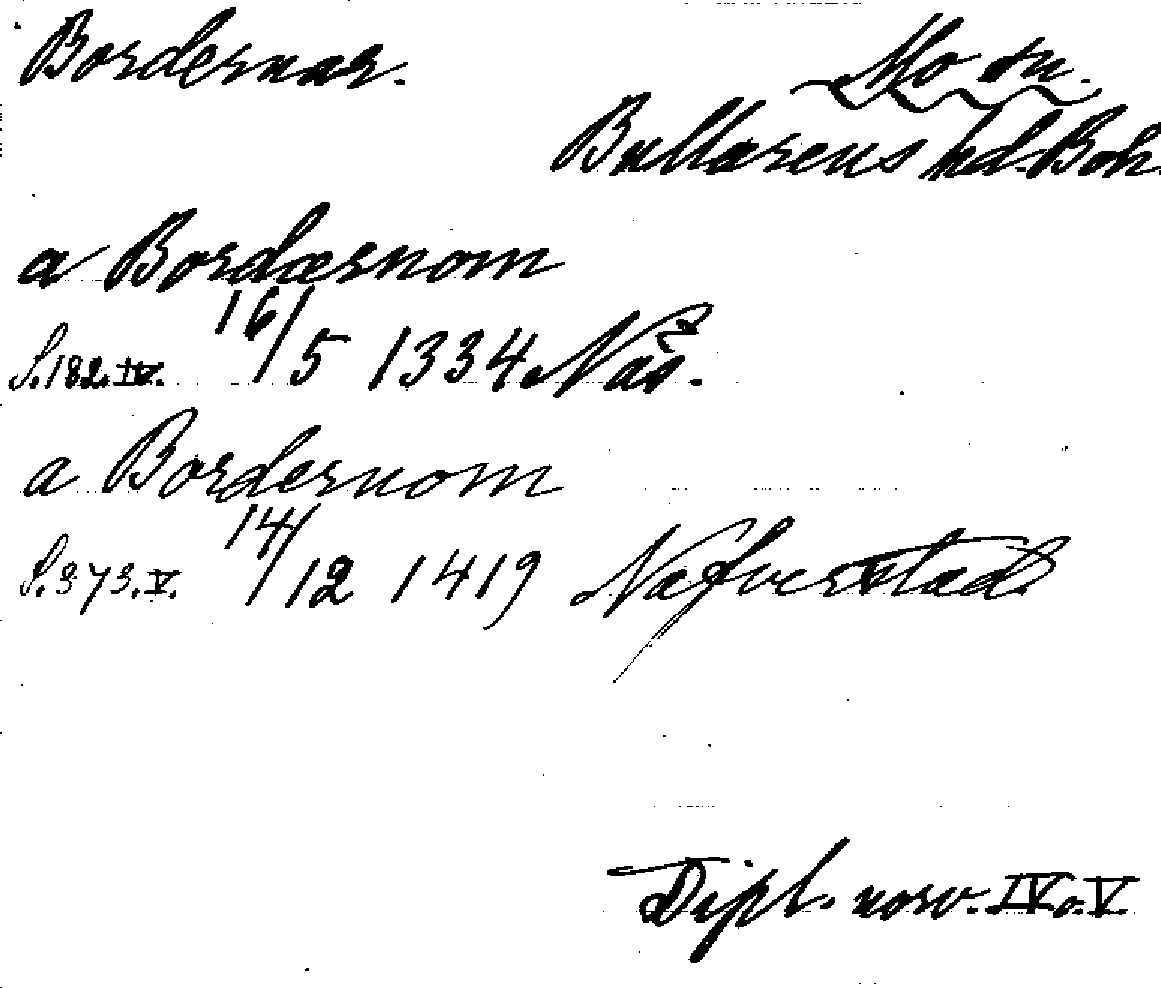 Bordernar. Mo sn.
Bullarens hd. Boh.
a Bordærnom
S. 182. IV. 16/5 1334 Näs.
a Bordernom
S. 373. V. 14/12 1419 Næfverstad
Dipl. norv. IV o. V